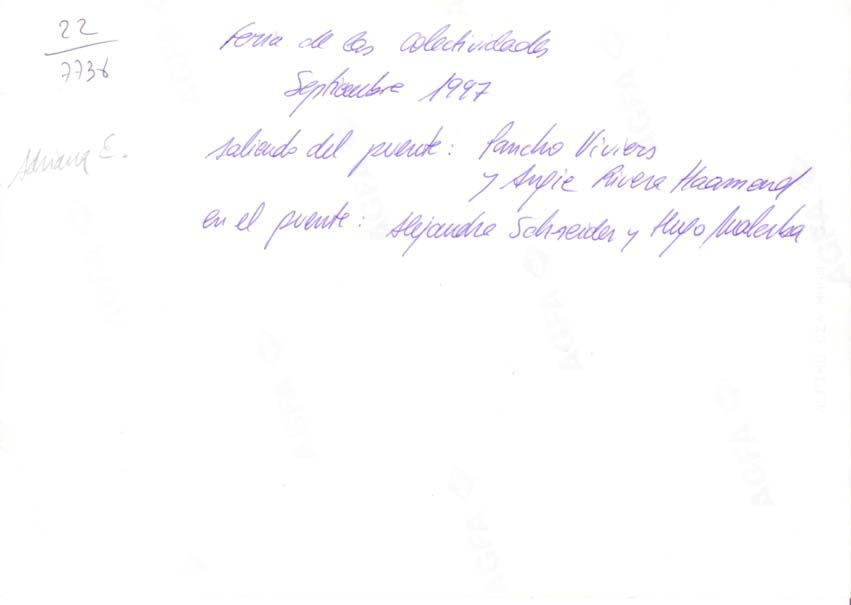 22
7736
Feria de las Colectividades
Septiembre 1997
Adriana E.
saliendo del puente: Pancho Viviers
y Angie Rivera Haamond
en el puente: Alejandra Schneider y Hugo Malerba
AGFA
AGFA
AGFA
AGFA
AGFA
AGFA
AGFA
AGFA
AGFA